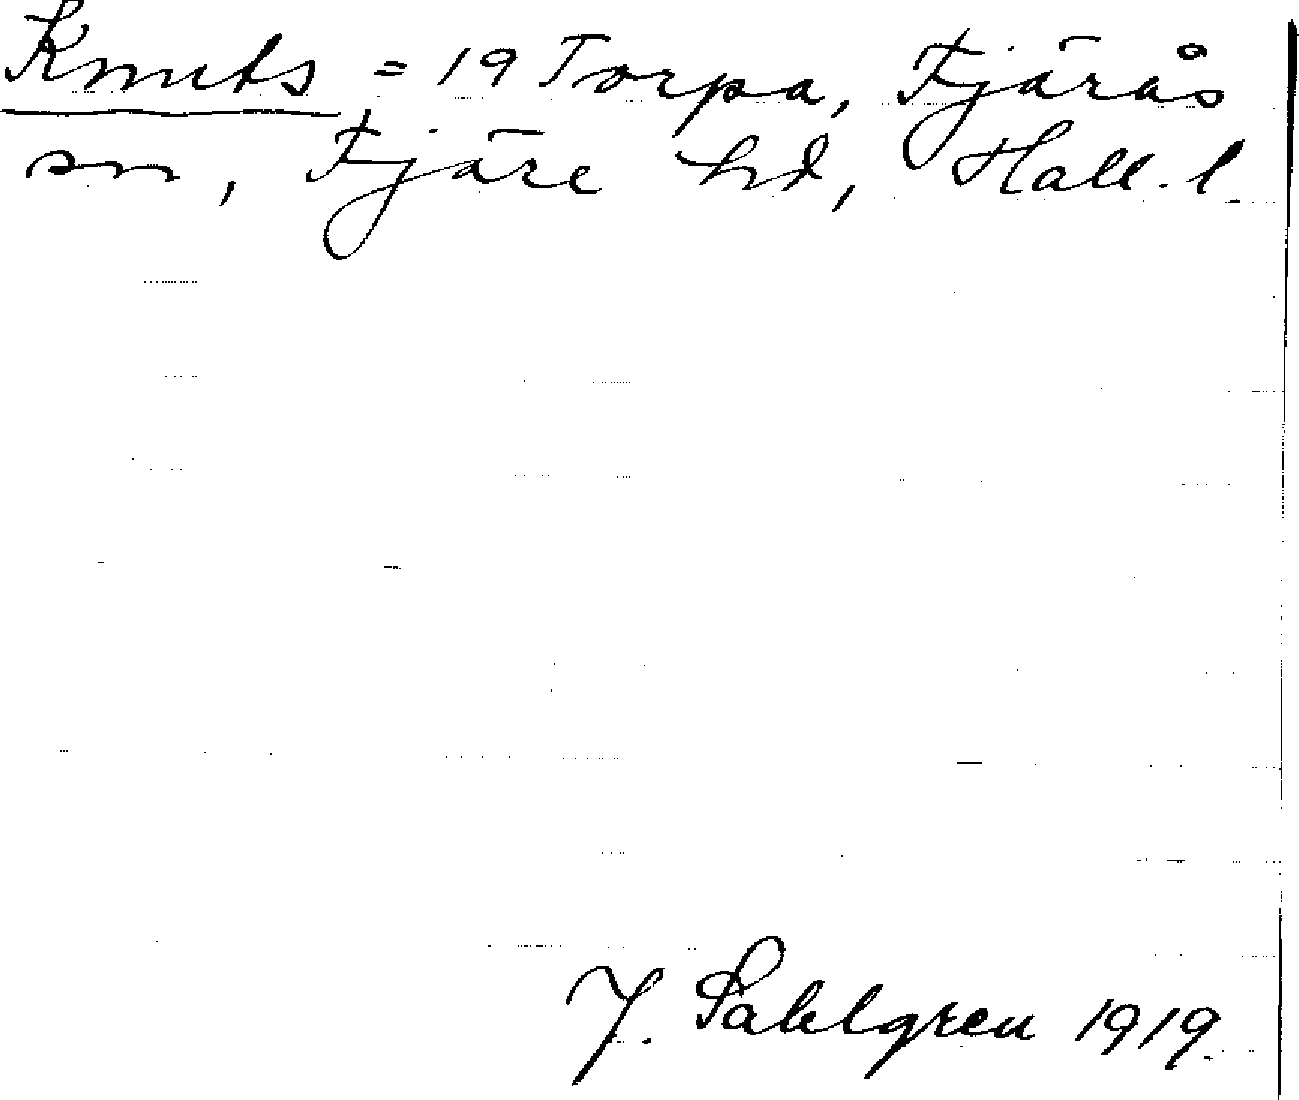 Knuts = 19 Torpa, Fjärås
sn, Fjäre hd, Hall. l.
J. Sahlgren 1919